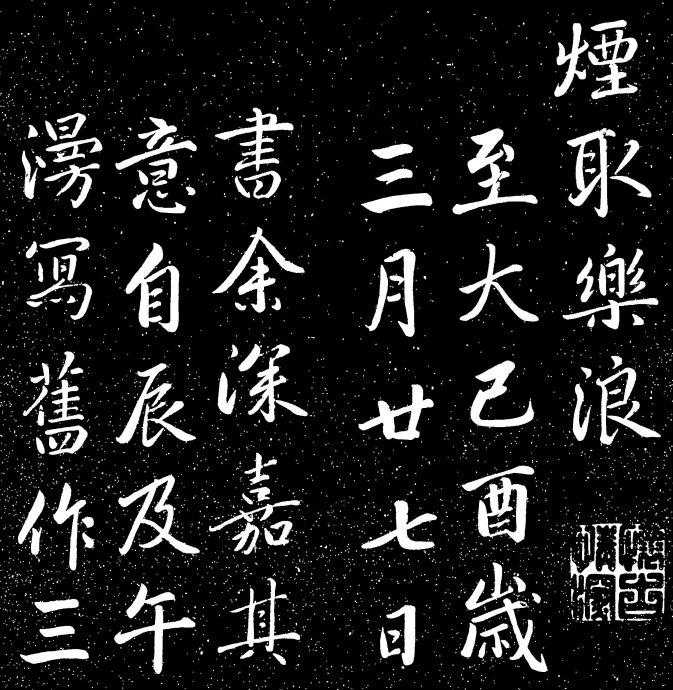 煙取樂浪
至大己酉歲
三月廿七日
書余深嘉其
意自辰及午
漫寫舊作三